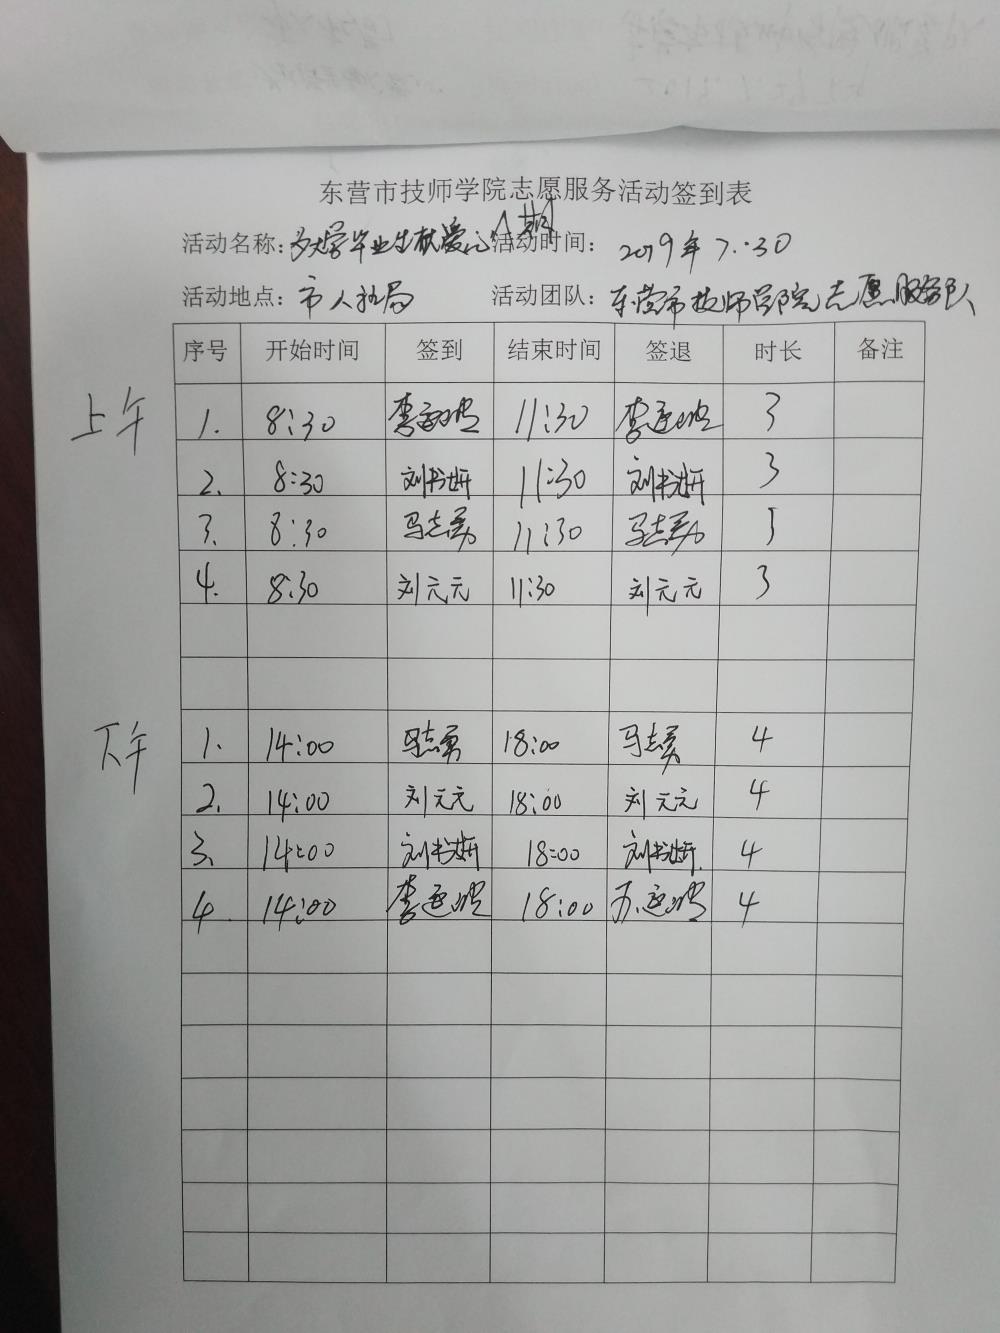 东营市技师学院志愿服务活动签到表
活动名称: 大学毕业生献爱心 活动时间: 2019年7.30
活动地点: 市人社局 活动团队: 东营市技师学院志愿服务队
序号 开始时间 签到 结束时间 签退 时长 备注
上午
1. 8:30 李 11:30 李 3
2. 8:30 刘书妍 11:30 刘书妍 3
3. 8:30 马志勇 11:30 马志勇 3
4. 8:30 刘元元 11:30 刘元元 3
下午
1. 14:00 马志勇 18:00 马志勇 4
2. 14:00 刘元元 18:00 刘元元 4
3. 14:00 刘书妍 18:00 刘书妍 4
4. 14:00 李 18:00 4